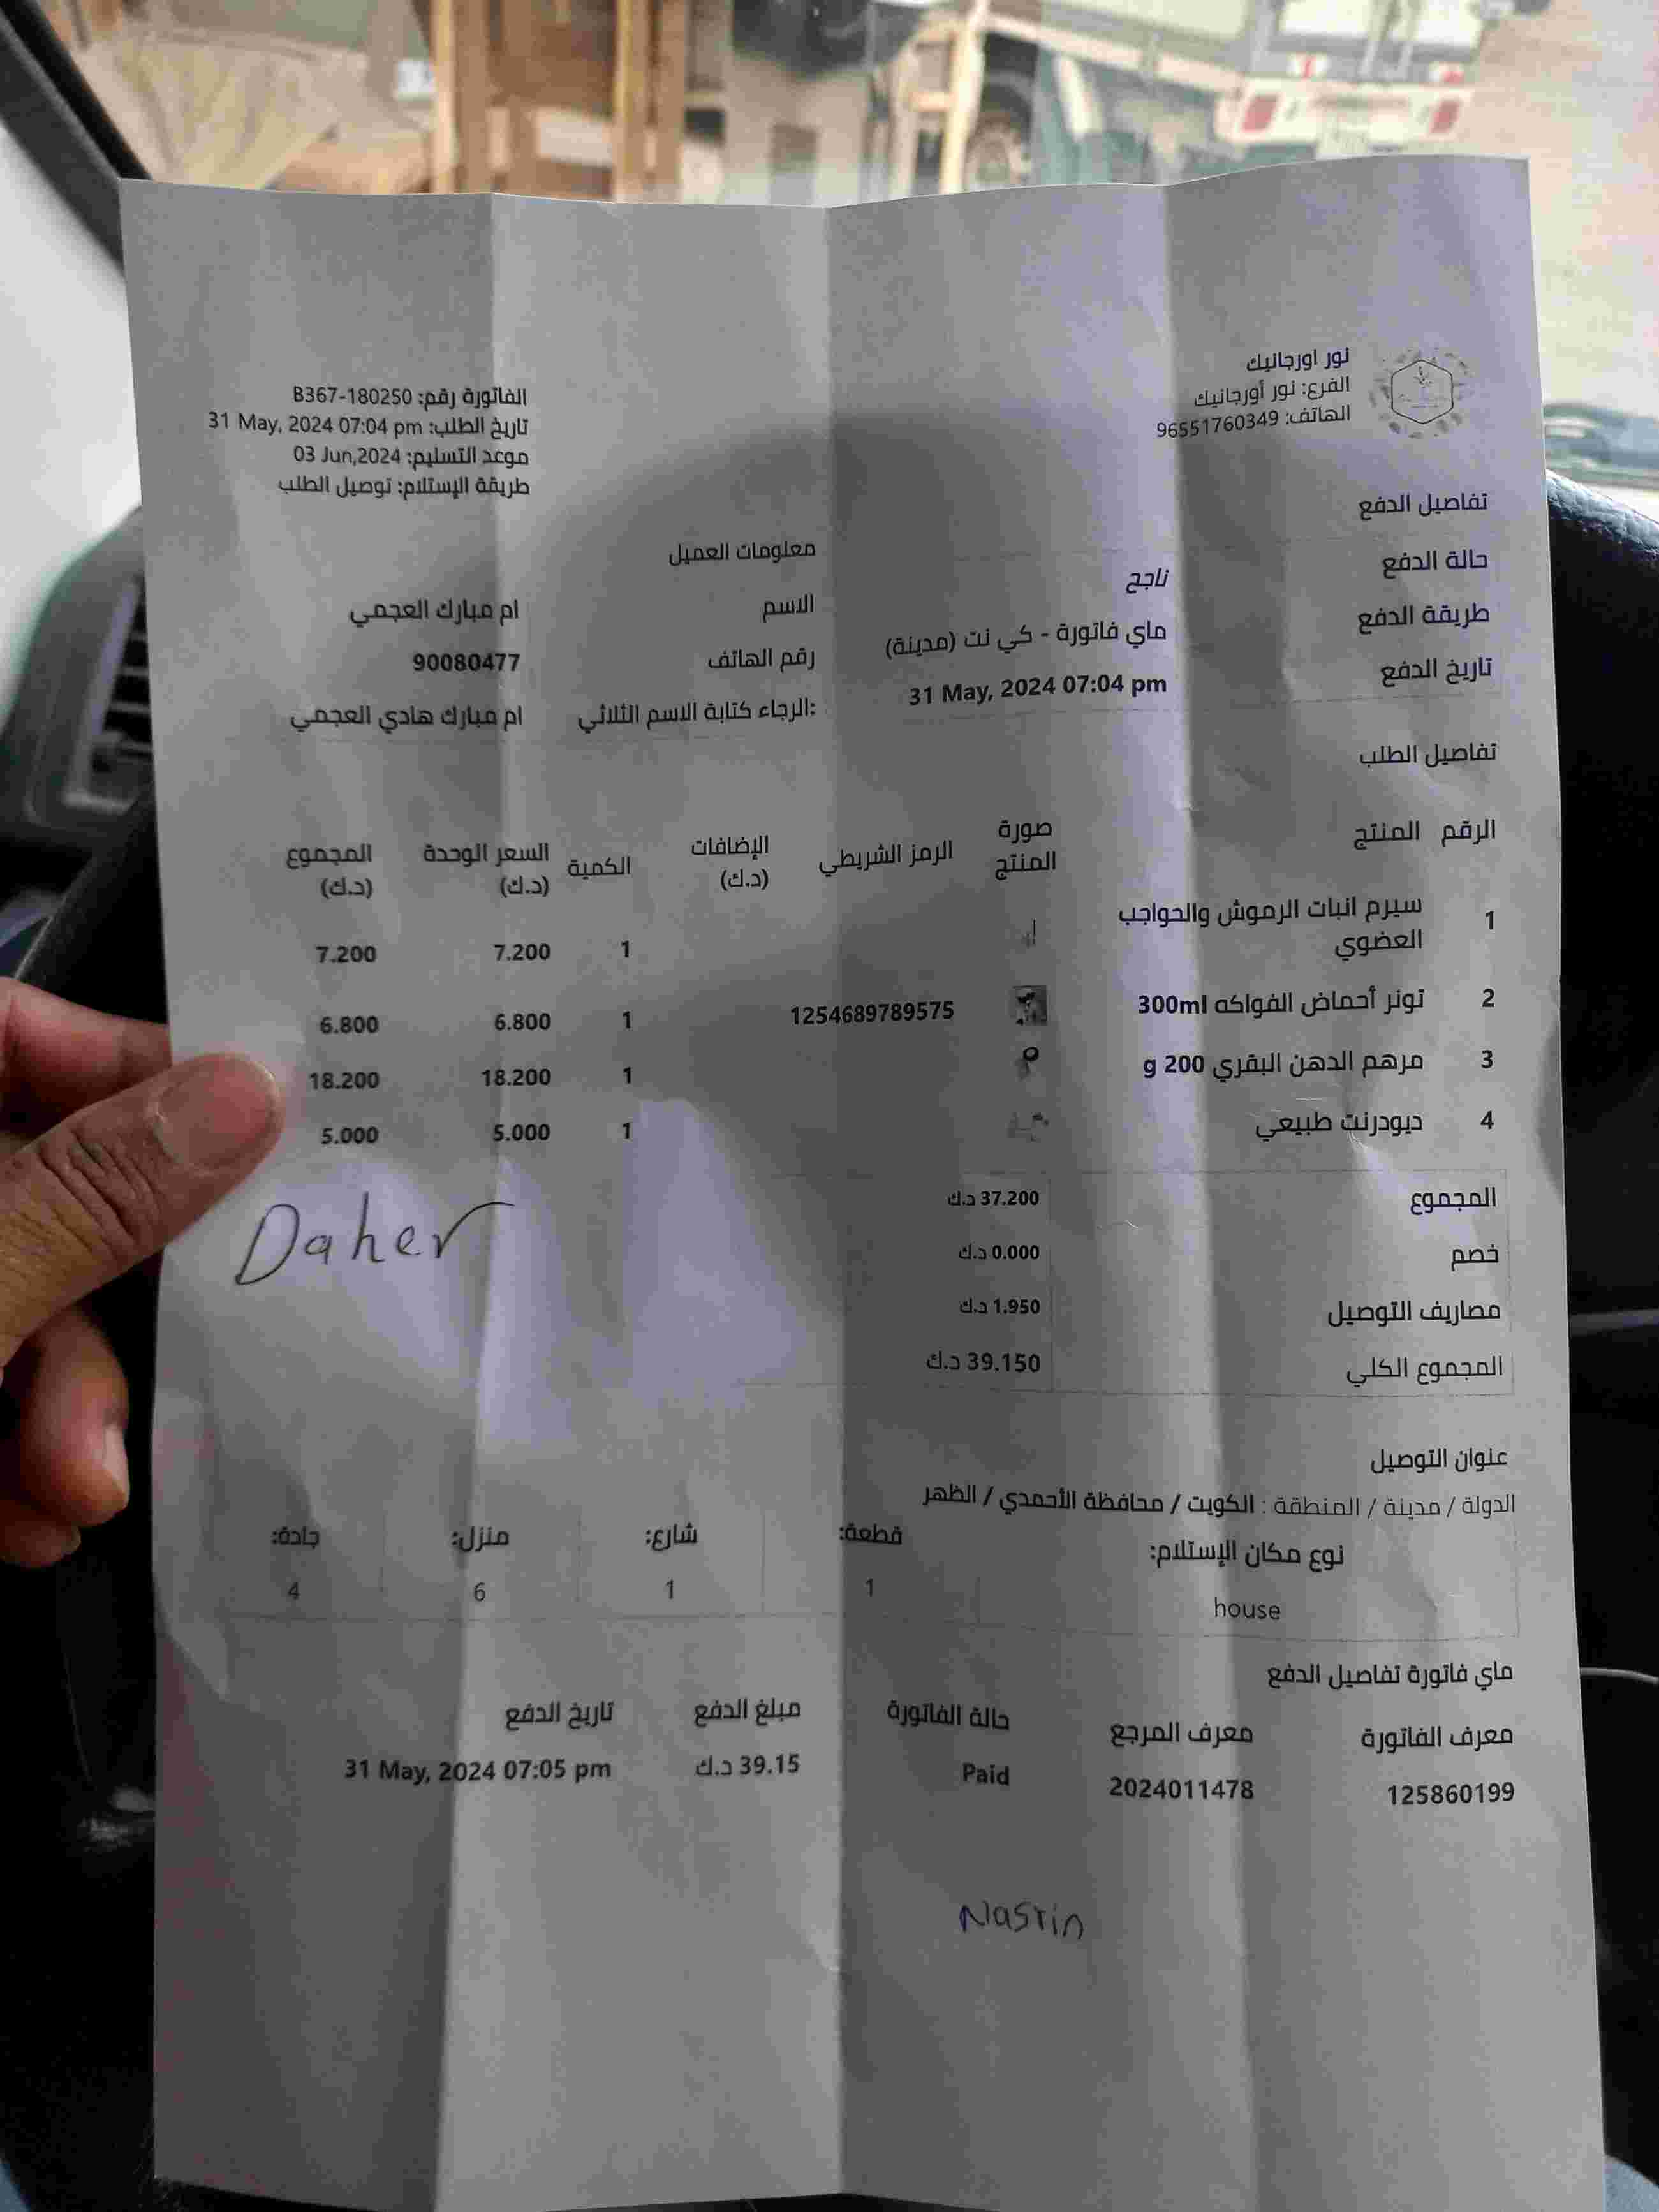 نور اورجانيك
الفرع: نور أورجانيك
الهاتف: 96551760349
الفاتورة رقم: B367-180250
تاريخ الطلب: 31 May, 2024 07:04 pm
موعد التسليم: 03 Jun,2024
طريقة الإستلام: توصيل الطلب
تفاصيل الدفع
حالة الدفع ناجح
طريقة الدفع ماي فاتورة - كي نت (مدينة)
تاريخ الدفع 31 May, 2024 07:04 pm
معلومات العميل
الاسم ام مبارك العجمي
رقم الهاتف 90080477
:الرجاء كتابة الاسم الثلاثي ام مبارك هادي العجمي
تفاصيل الطلب
الرقم المنتج صورة المنتج الرمز الشريطي الإضافات (د.ك) الكمية السعر الوحدة (د.ك) المجموع (د.ك)
1 سيرم انبات الرموش والحواجب العضوي 1 7.200 7.200
2 تونر أحماض الفواكه 300ml 1254689789575 1 6.800 6.800
3 مرهم الدهن البقري 200 g 1 18.200 18.200
4 ديودرنت طبيعي 1 5.000 5.000
Daher
المجموع 37.200 د.ك
خصم 0.000 د.ك
مصاريف التوصيل 1.950 د.ك
المجموع الكلي 39.150 د.ك
عنوان التوصيل
الدولة / مدينة / المنطقة : الكويت / محافظة الأحمدي / الظهر
نوع مكان الإستلام: قطعة: شارع: منزل: جادة:
house 1 1 6 4
ماي فاتورة تفاصيل الدفع
معرف الفاتورة معرف المرجع حالة الفاتورة مبلغ الدفع تاريخ الدفع
125860199 2024011478 Paid 39.15 د.ك 31 May, 2024 07:05 pm
Nasrin